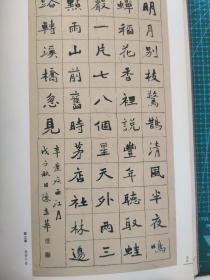 明月別枝驚鵲清風半夜鳴
蟬稻花香裡說豐年聽取蛙
聲一片七八個星天外兩三
點雨山前舊時茅店社林邊
路轉溪橋忽見
辛棄疾西江月
戊子秋日